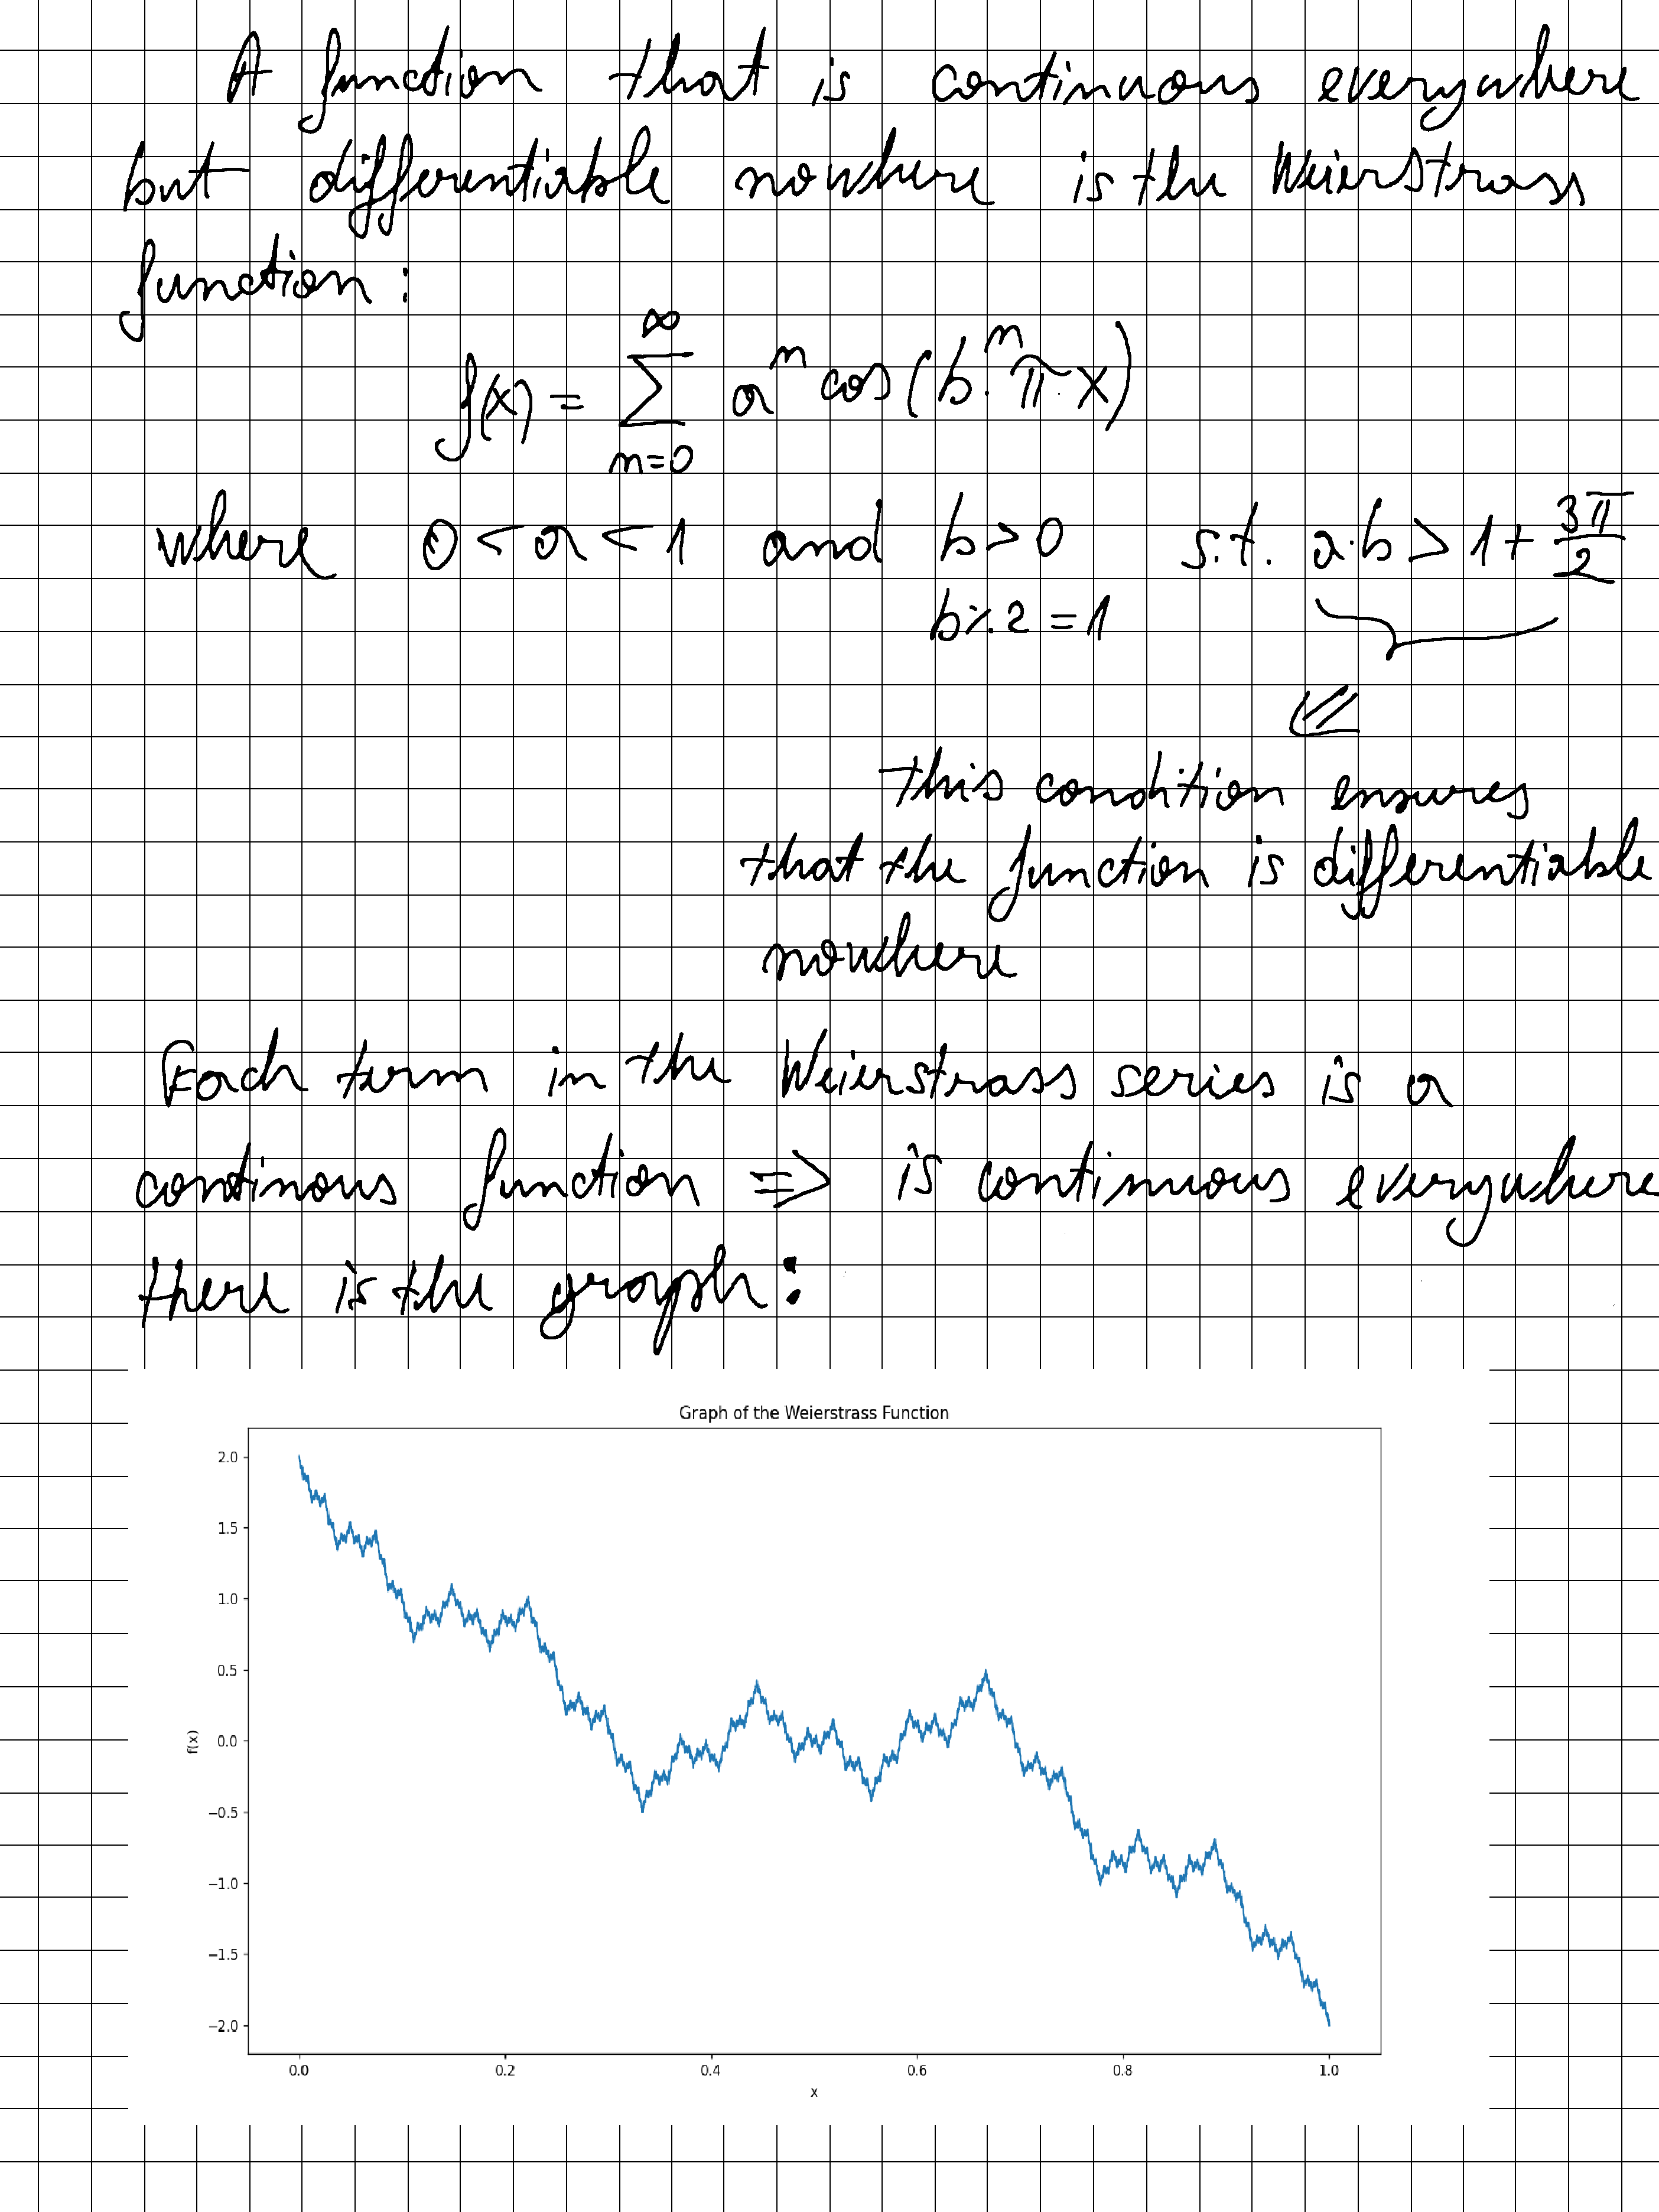 A function that is continuous everywhere
but differentiable nowhere is the Weierstrass
function:
f(x) = ∑_{n=0}^{∞} a^n cos(b^n·π·x)
where 0 < a < 1 and b > 0 s.t. a·b > 1 + 3π/2
b % 2 = 1
⇐
this condition ensures
that the function is differentiable
nowhere
Each term in the Weierstrass series is a
continous function => is continuous everywhere
there is the graph:
Graph of the Weierstrass Function
2.0
1.5
1.0
0.5
0.0
−0.5
−1.0
−1.5
−2.0
f(x)
0.0 0.2 0.4 0.6 0.8 1.0
x